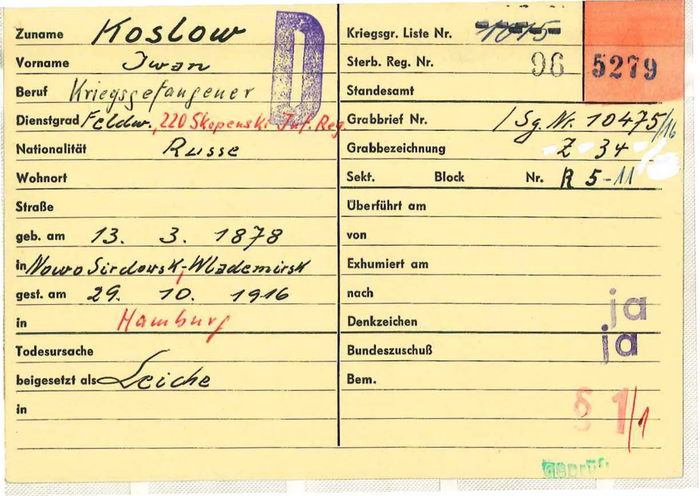 Zuname Koslow
Vorname Iwan
Beruf Kriegsgefangener
Dienstgrad Feldw., 220 Skopenski Inf. Reg.
Nationalität Russe
Wohnort
Straße
geb. am 13. 3. 1878
in Nowo Sirdowsk, Wlademirsk
gest. am 29. 10. 1916
in Hamburg
Todesursache
beigesetzt als Leiche
in
D
Kriegsgr. Liste Nr. 1015
Sterb. Reg. Nr. 96 5279
Standesamt
Grabbrief Nr. / Sg. Nr. 10475/16
Grabbezeichnung Z 34
Sekt. Block Nr. R 5-11
Überführt am
von
Exhumiert am
nach
Denkzeichen ja
Bundeszuschuß ja
Bem.
§ 1/1
Geprüft